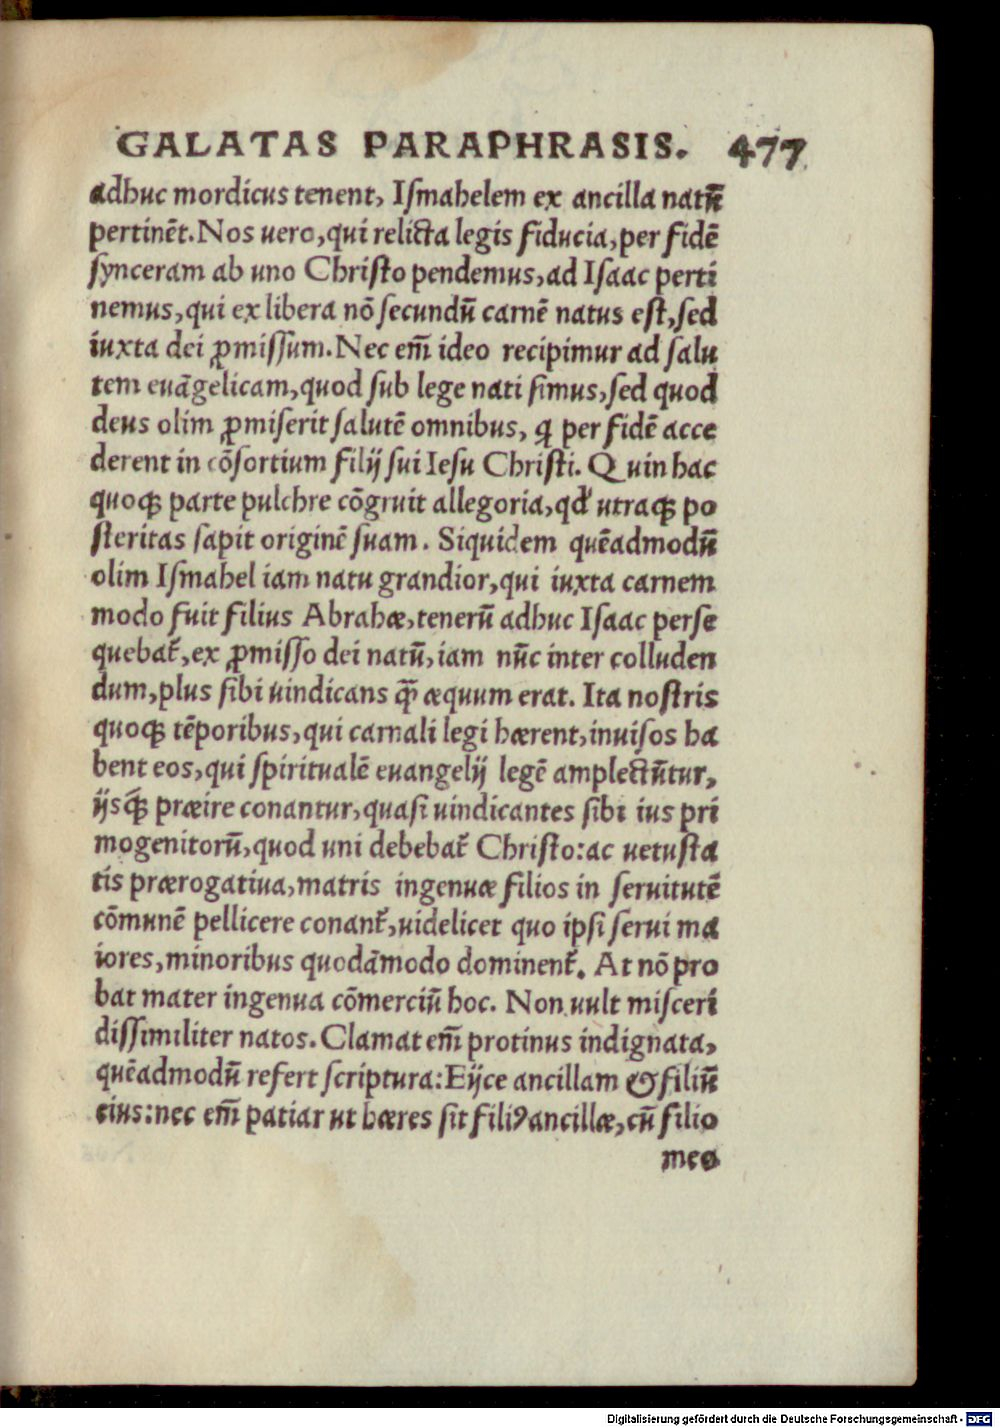 GALATAS PARAPHRASIS. 477
adhuc mordicus tenent, Iſmahelem ex ancilla natũ
pertinẽt. Nos uero, qui relicta legis fiducia, per fidẽ
ſynceram ab uno Chriſto pendemus, ad Iſaac perti
nemus, qui ex libera nõ ſecundũ carnẽ natus eſt, ſed
iuxta dei ꝓmiſſum. Nec em̃ ideo recipimur ad ſalu
tem euãgelicam, quod ſub lege nati ſimus, ſed quod
deus olim ꝓmiſerit ſalutẽ omnibus, ꝗ per fidẽ acce
derent in cõſortium filij ſui Ieſu Chriſti. Quin hac
quoqꝫ parte pulchre cõgruit allegoria, qđ utraqꝫ po
ſteritas ſapit originẽ ſuam. Siquidem quẽadmodũ
olim Iſmahel iam natu grandior, qui iuxta carnem
modo fuit filius Abrahæ, tenerũ adhuc Iſaac perſe
quebat̃, ex ꝓmiſſo dei natũ, iam nũc inter colluden
dum, plus ſibi uindicans q̃ꝫ æquum erat. Ita noſtris
quoqꝫ tẽporibus, qui carnali legi hærent, inuiſos ha
bent eos, qui ſpiritualẽ euangelij legẽ amplectũtur,
ijsq́ꝫ præire conantur, quaſi uindicantes ſibi ius pri
mogenitorũ, quod uni debebat̃ Chriſto: ac uetuſta
tis prærogatiua, matris ingenuæ filios in ſeruitutẽ
cõmunẽ pellicere conant̃, uidelicet quo ipſi ſerui ma
iores, minoribus quodãmodo dominent̃. At nõ pro
bat mater ingenua cõmerciũ hoc. Non uult miſceri
diſſimiliter natos. Clamat em̃ protinus indignata,
quẽadmodũ refert ſcriptura: Eijce ancillam & filiũ
eius: nec em̃ patiar ut hæres ſit filiꝰ ancillæ, cũ filio
meo
Digitalisierung gefördert durch die Deutsche Forschungsgemeinschaft - DFG